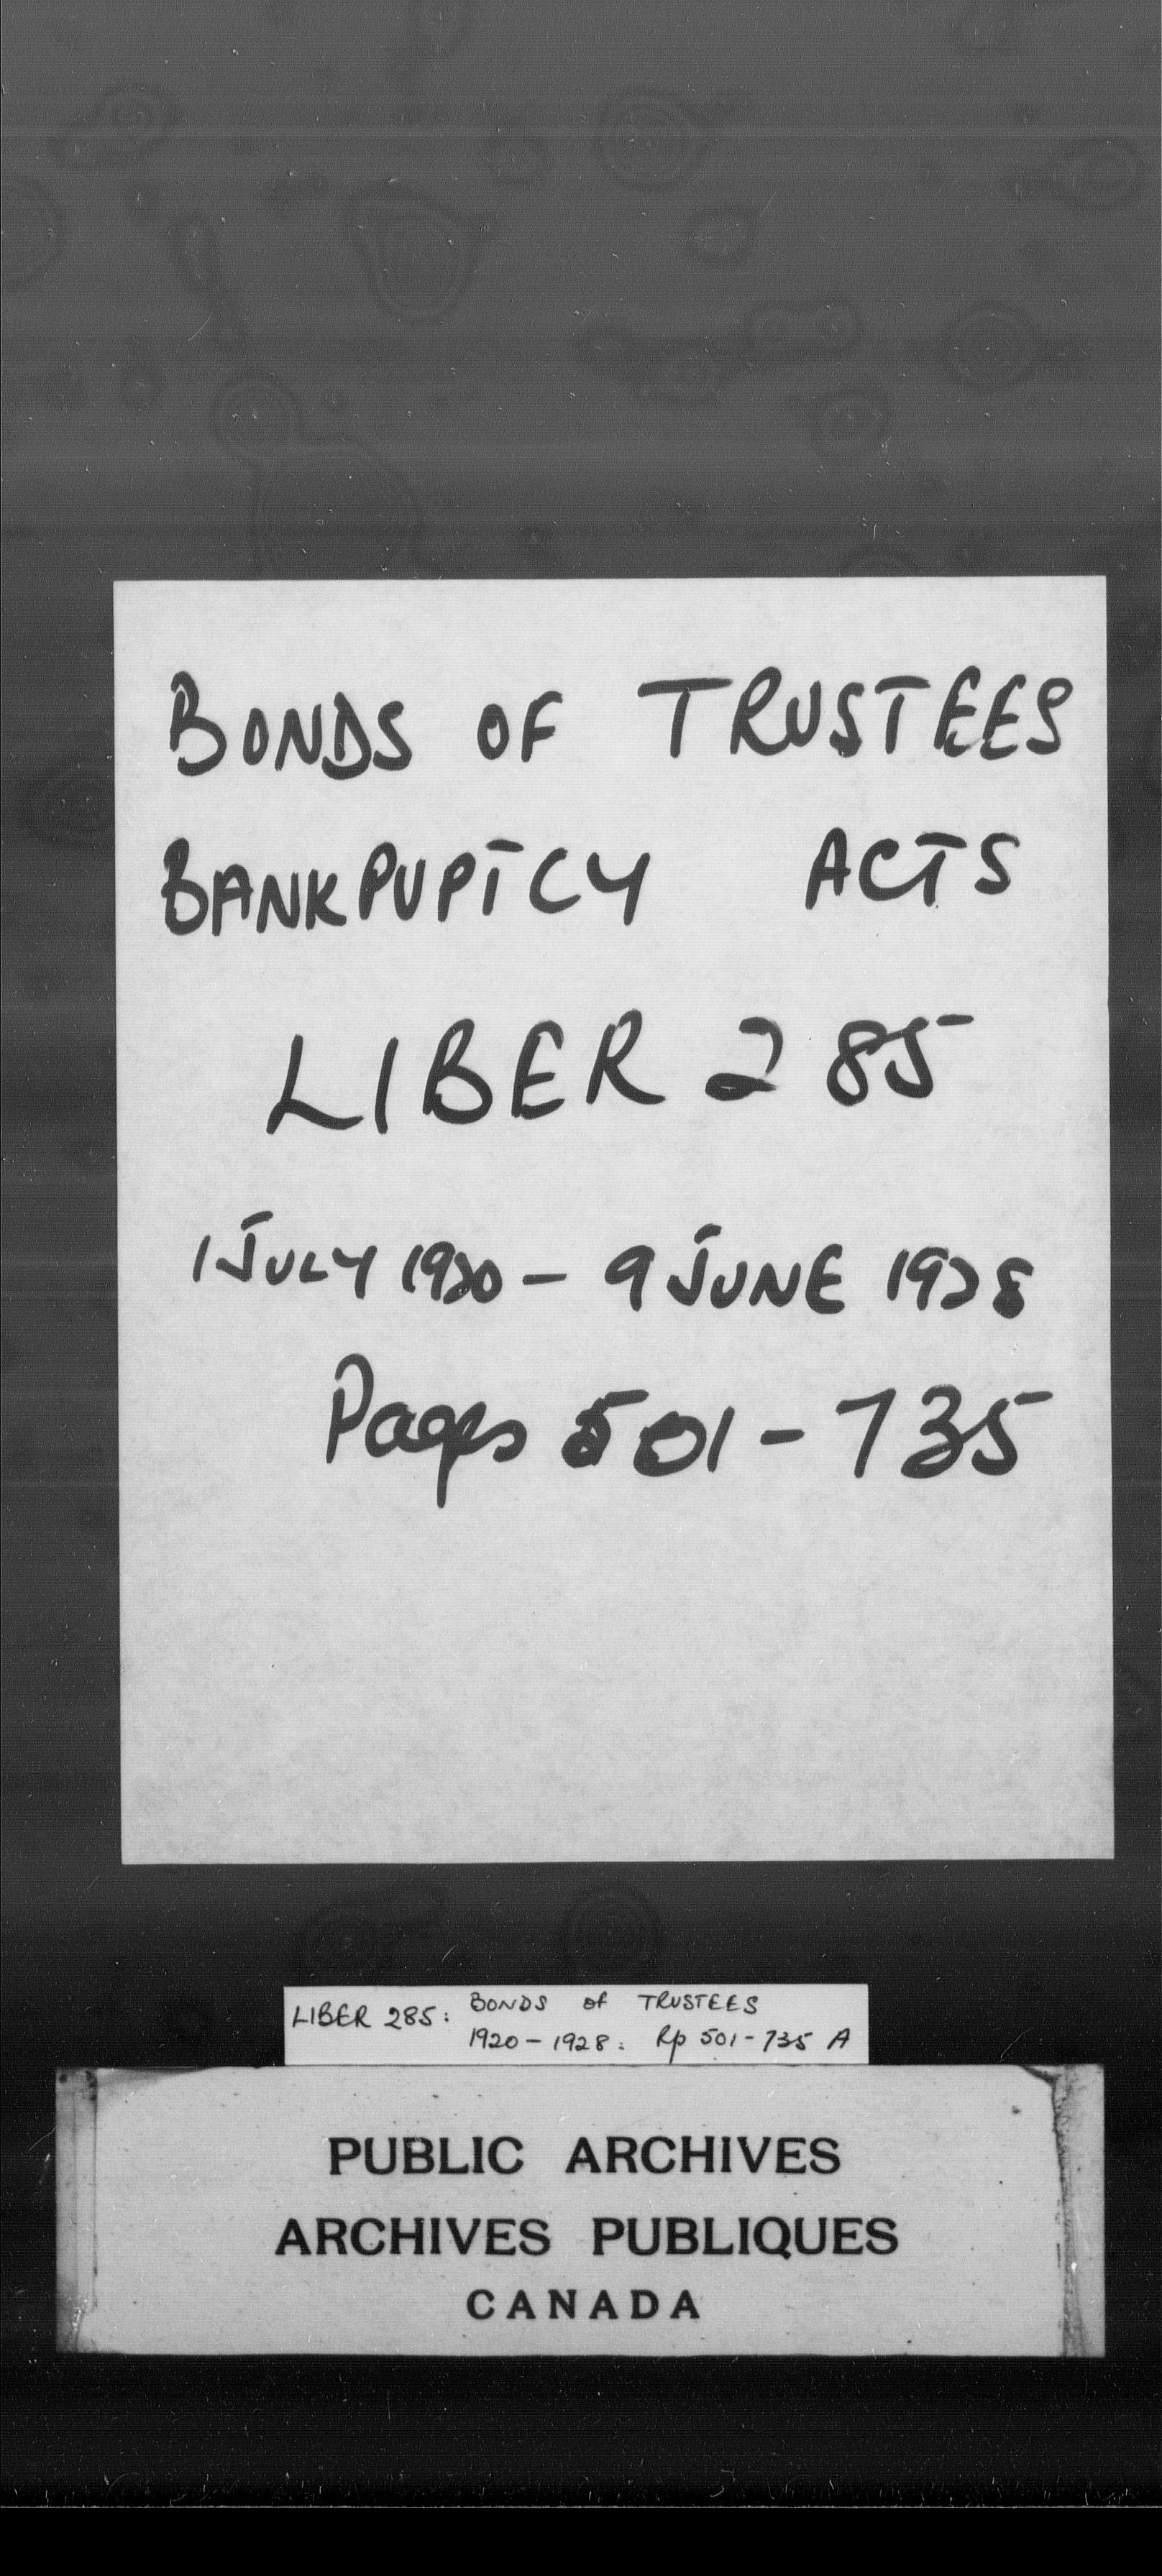 BONDS OF TRUSTEES
BANKPUPTCY ACTS
LIBER 285
1 JULY 1920 - 9 JUNE 1928
Pages 501 - 735
LIBER 285: BONDS of TRUSTEES
1920 - 1928: Pp 501 - 735 A
PUBLIC ARCHIVES
ARCHIVES PUBLIQUES
CANADA